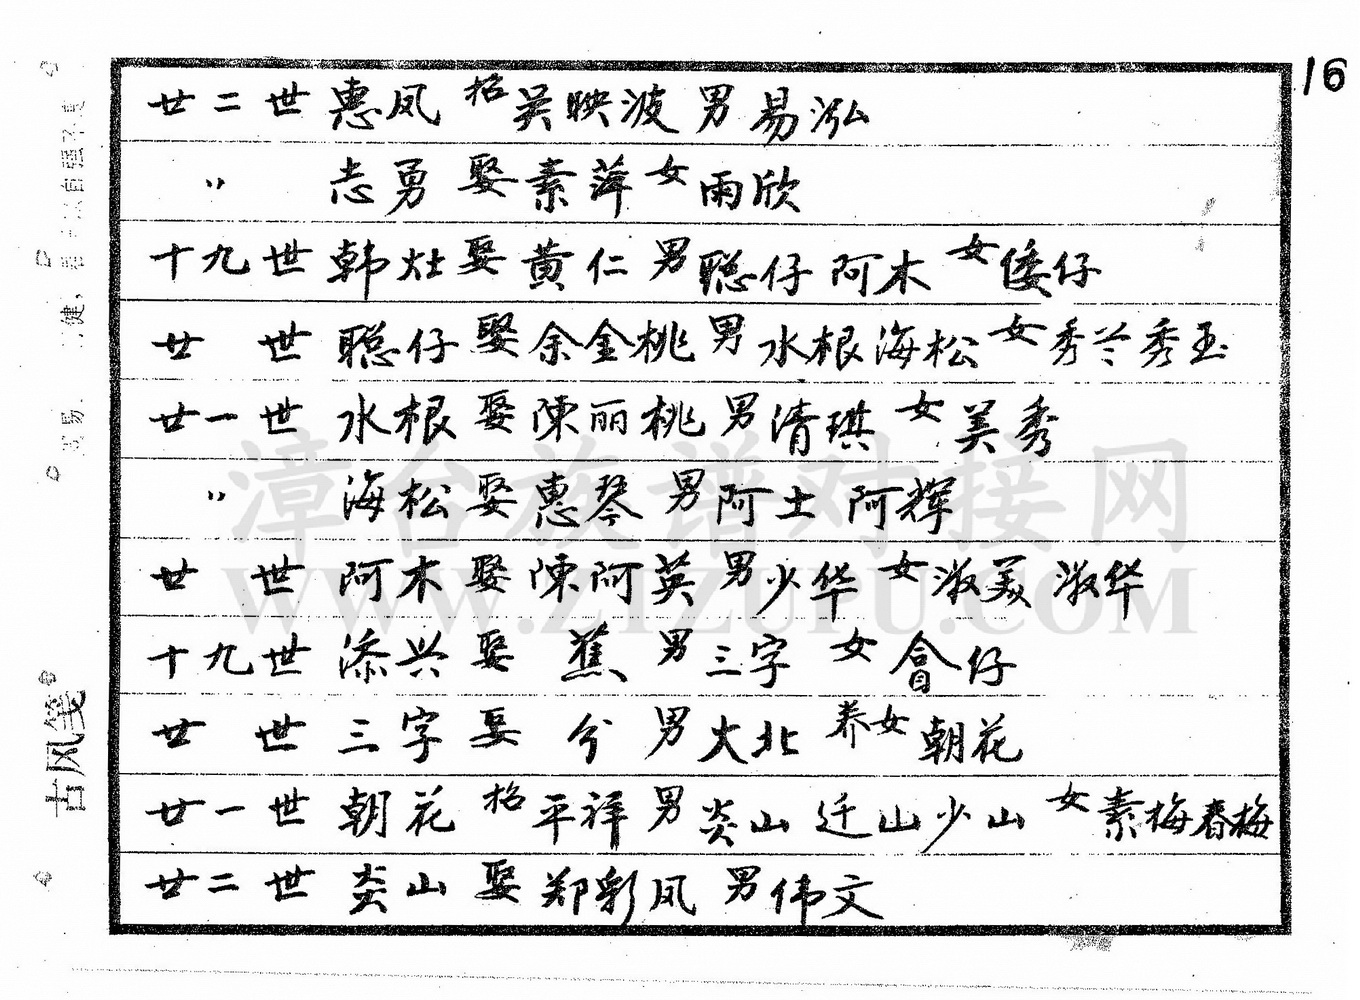 16
廿二世 惠凤 招 吴映波 男 易泓
〃 志勇 娶 素萍 女 雨欣
十九世 韩灶 娶 黄仁 男 聪仔 阿木 女 倭仔
廿世 聪仔 娶 余金桃 男 水根 海松 女 秀兰 秀玉
廿一世 水根 娶 陳丽桃 男 清琪 女 美秀
〃 海松 娶 惠琴 男 阿土 阿辉
廿世 阿木 娶 陳阿英 男 少华 女 淑美 淑华
十九世 添兴 娶 蕉 男 三字 女 仔
廿世 三字 娶 兮 男 大北 养女 朝花
廿一世 朝花 招 平祥 男 炎山 迁山 少山 女 素梅 春梅
廿二世 炎山 娶 郑彩凤 男 伟文
古风笺
漳台族谱对接网
WWW.ZIZUPU.COM